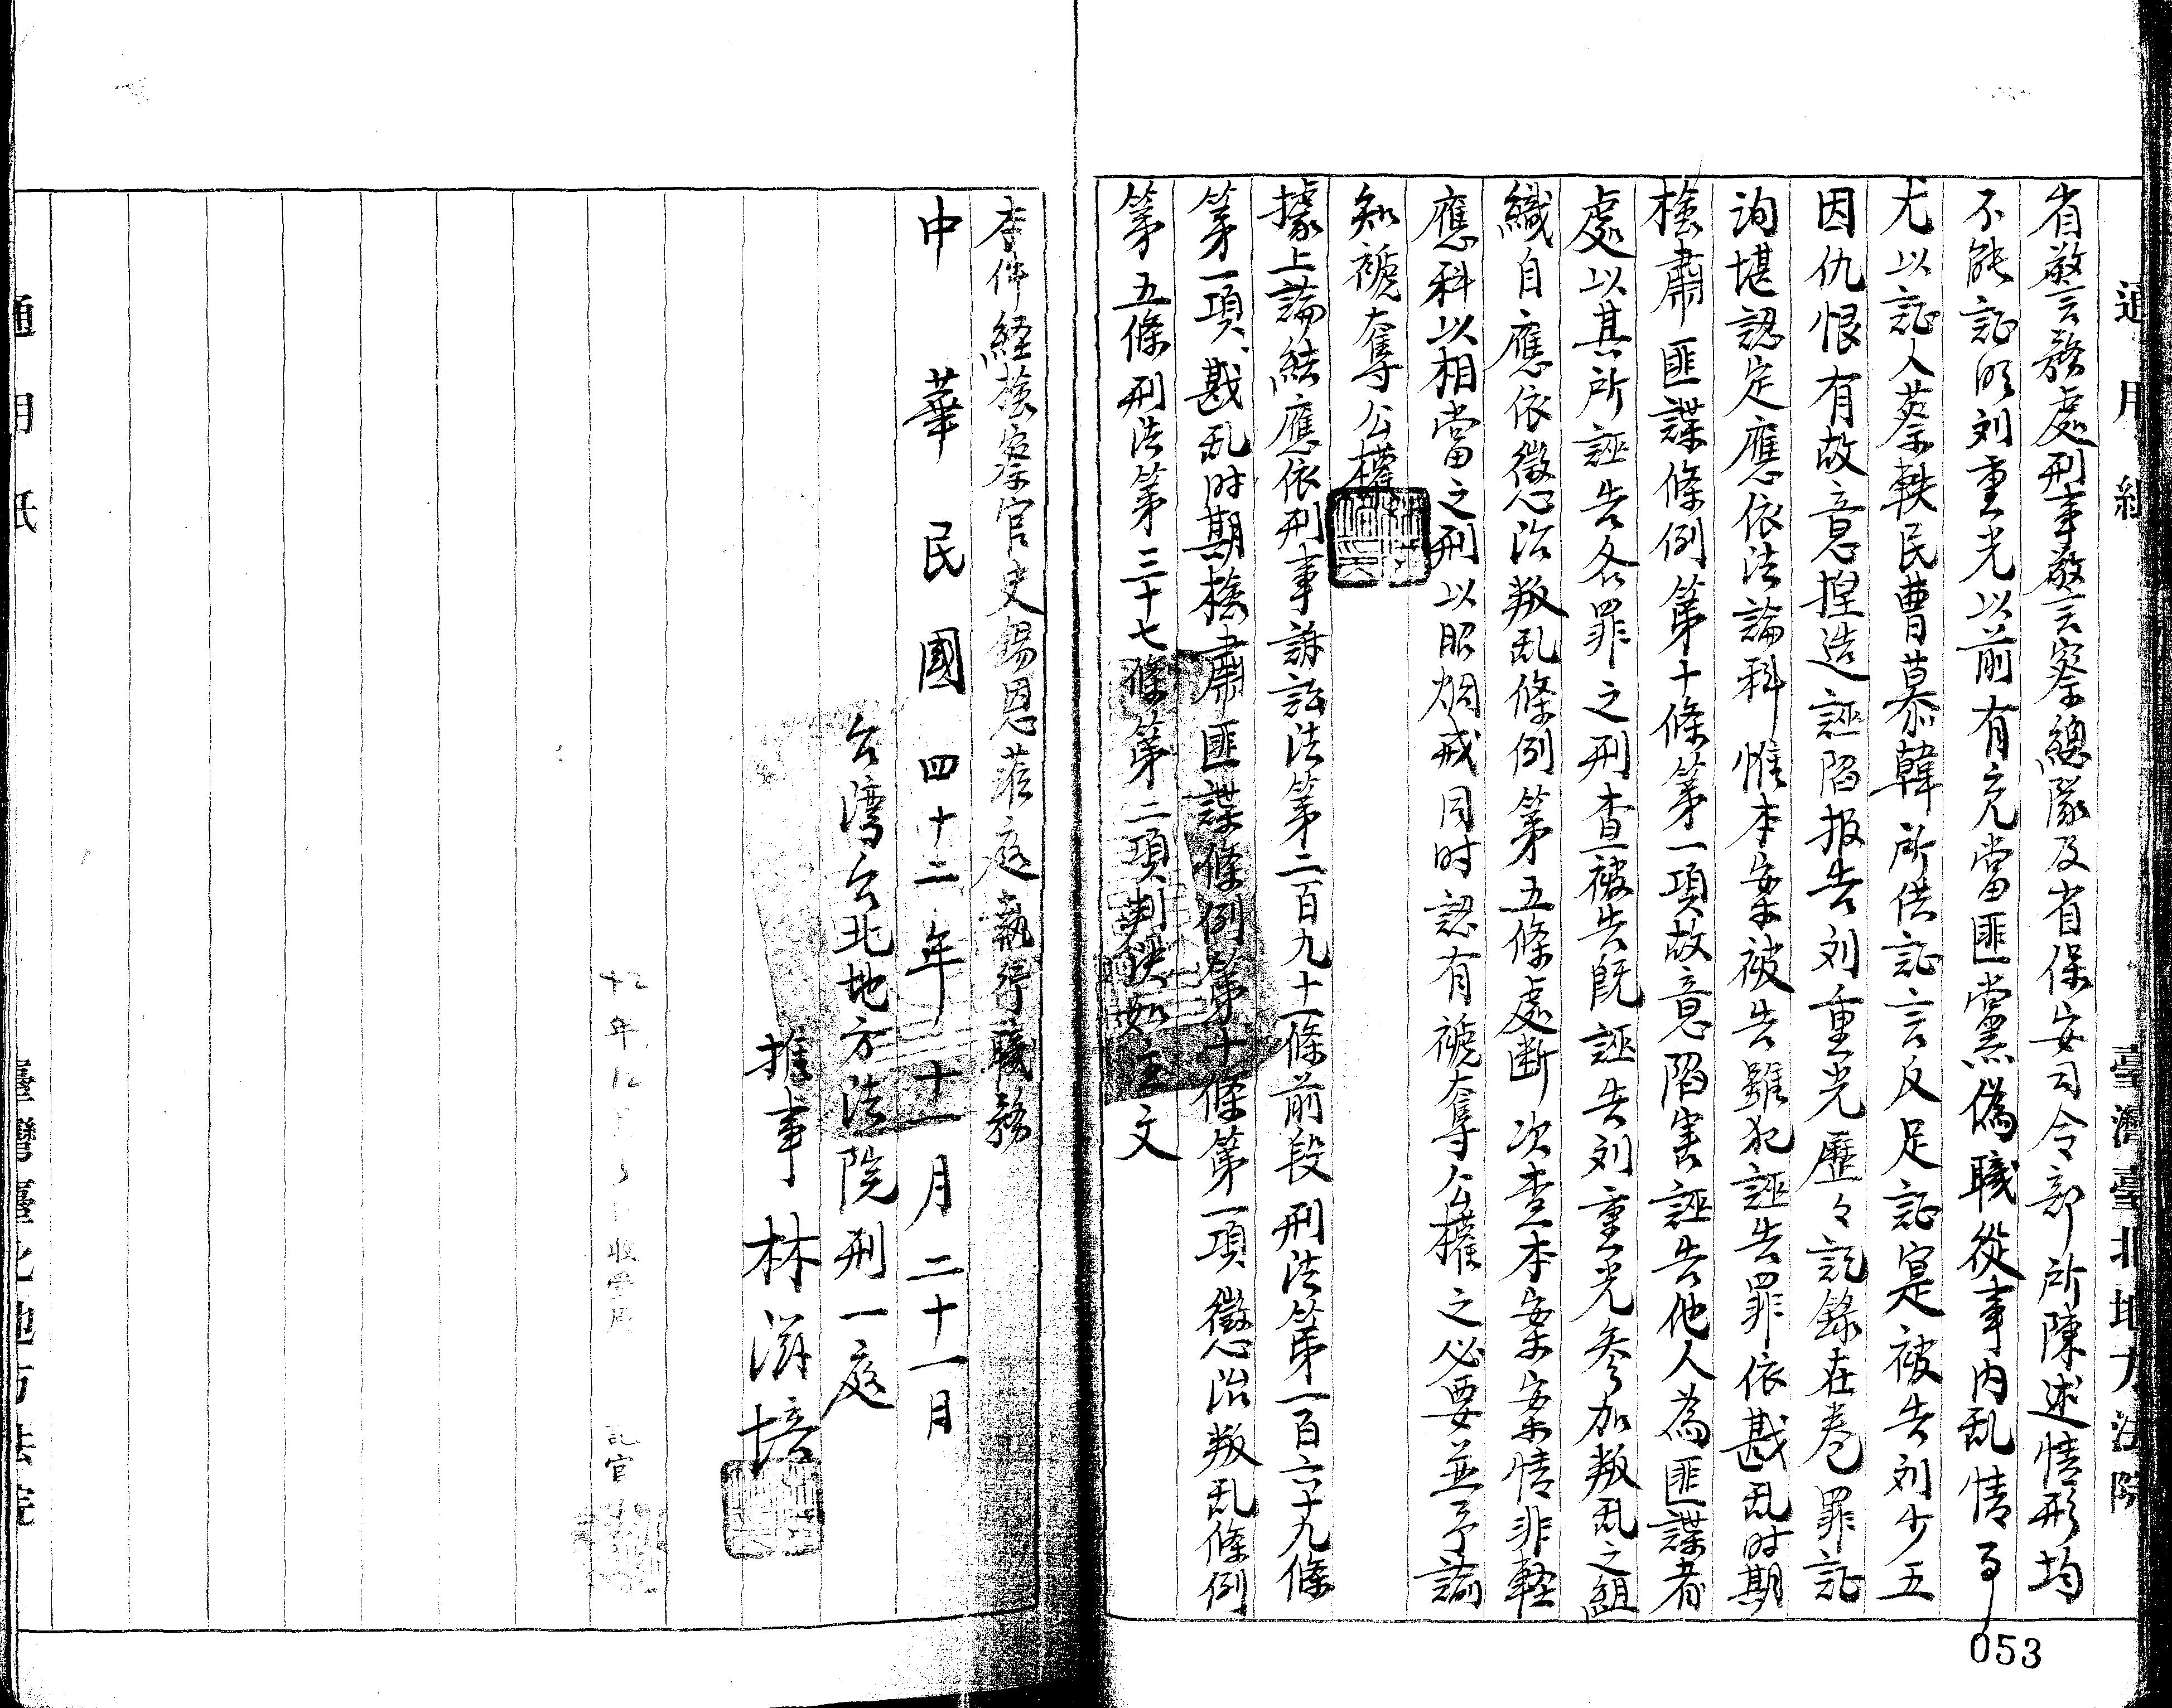 通用紙 臺灣臺北地方法院
省警務處刑事警察總隊及省保安司令部所陳述情形均
不能証明刘重光以前有充當匪黨偽職從事内乱情事
尤以証人蔡軼民曹慕韓所供証言反足証寔被告刘少五
因仇恨有故意揑造誣陷报告刘重光歷々記錄在卷罪証
洵堪認定應依法論科惟本案被告雖犯誣告罪依戡乱时期
檢肅匪諜條例第十條第一項故意陷害誣告他人為匪諜者
處以其所誣告各罪之刑查被告既誣告刘重光参加叛乱之組
織自應依懲治叛乱條例第五條處断次查本案案情非輕
應科以相當之刑以昭烱戒同时認有褫奪公權之必要並予諭
知褫奪公權
據上論結應依刑事訴訟法第二百九十一條前段刑法第一百六十九條
第一項、戡乱时期檢肅匪諜條例第十條第一項懲治叛乱條例
第五條刑法第三十七條第二項判决如主文
本件経檢察官史錫恩蒞庭執行職務
中華民國四十二年十一月二十一日
台湾台北地方法院刑一庭
推事林滋培
年12月
記官
通用紙 臺灣臺北地方法院
053